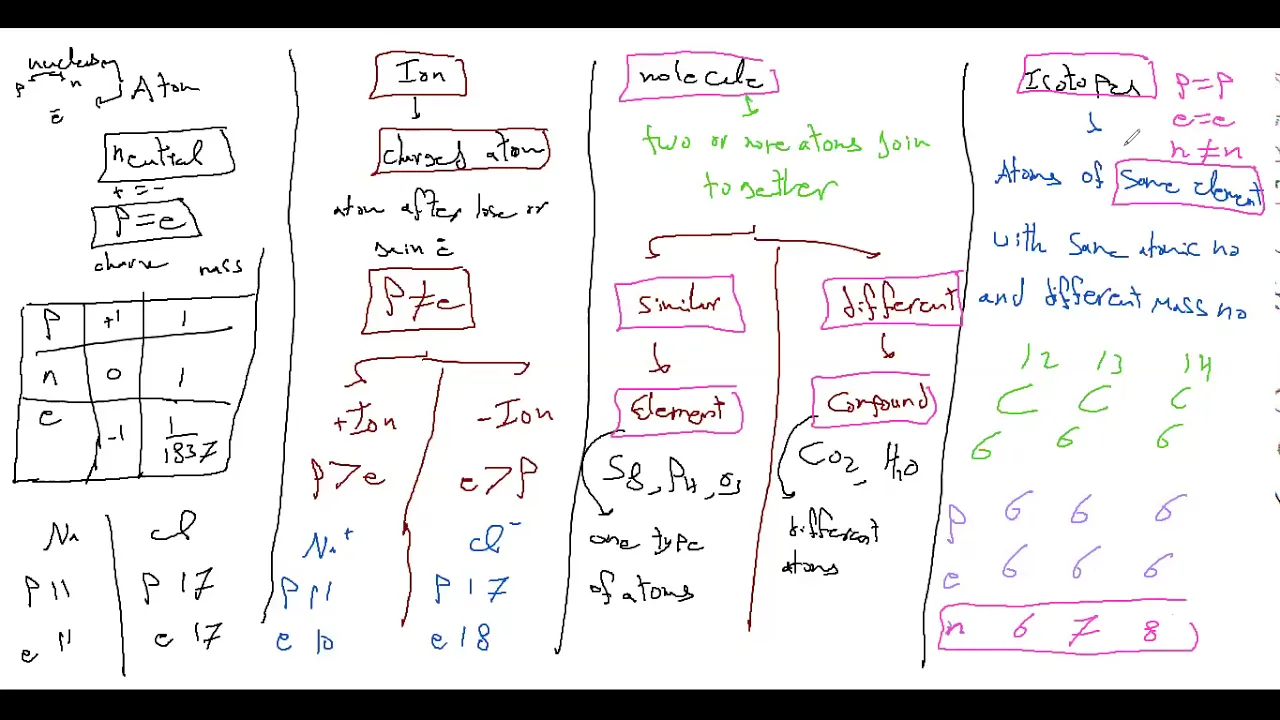 nucleus
p n Atom
ē
neutral
+ = -
P = e
charge mass
P +1 1
n 0 1
e -1 1/1837
Na Cl
P 11 P 17
e 11 e 17
Ion
charged atom
atom after lose or
gain ē
P ≠ e
+Ion -Ion
P > e e > P
Na⁺ Cl⁻
P 11 P 17
e 10 e 18
molecule
two or more atoms join
together
similar different
Element Compound
S8, P4, O3 CO2, H2O
one type
of atoms
different
atoms
Isotopes
P = P
e = e
n ≠ n
Atoms of Same element
with same atomic no
and different mass no
12 13 14
C C C
6 6 6
P 6 6 6
e 6 6 6
n 6 7 8